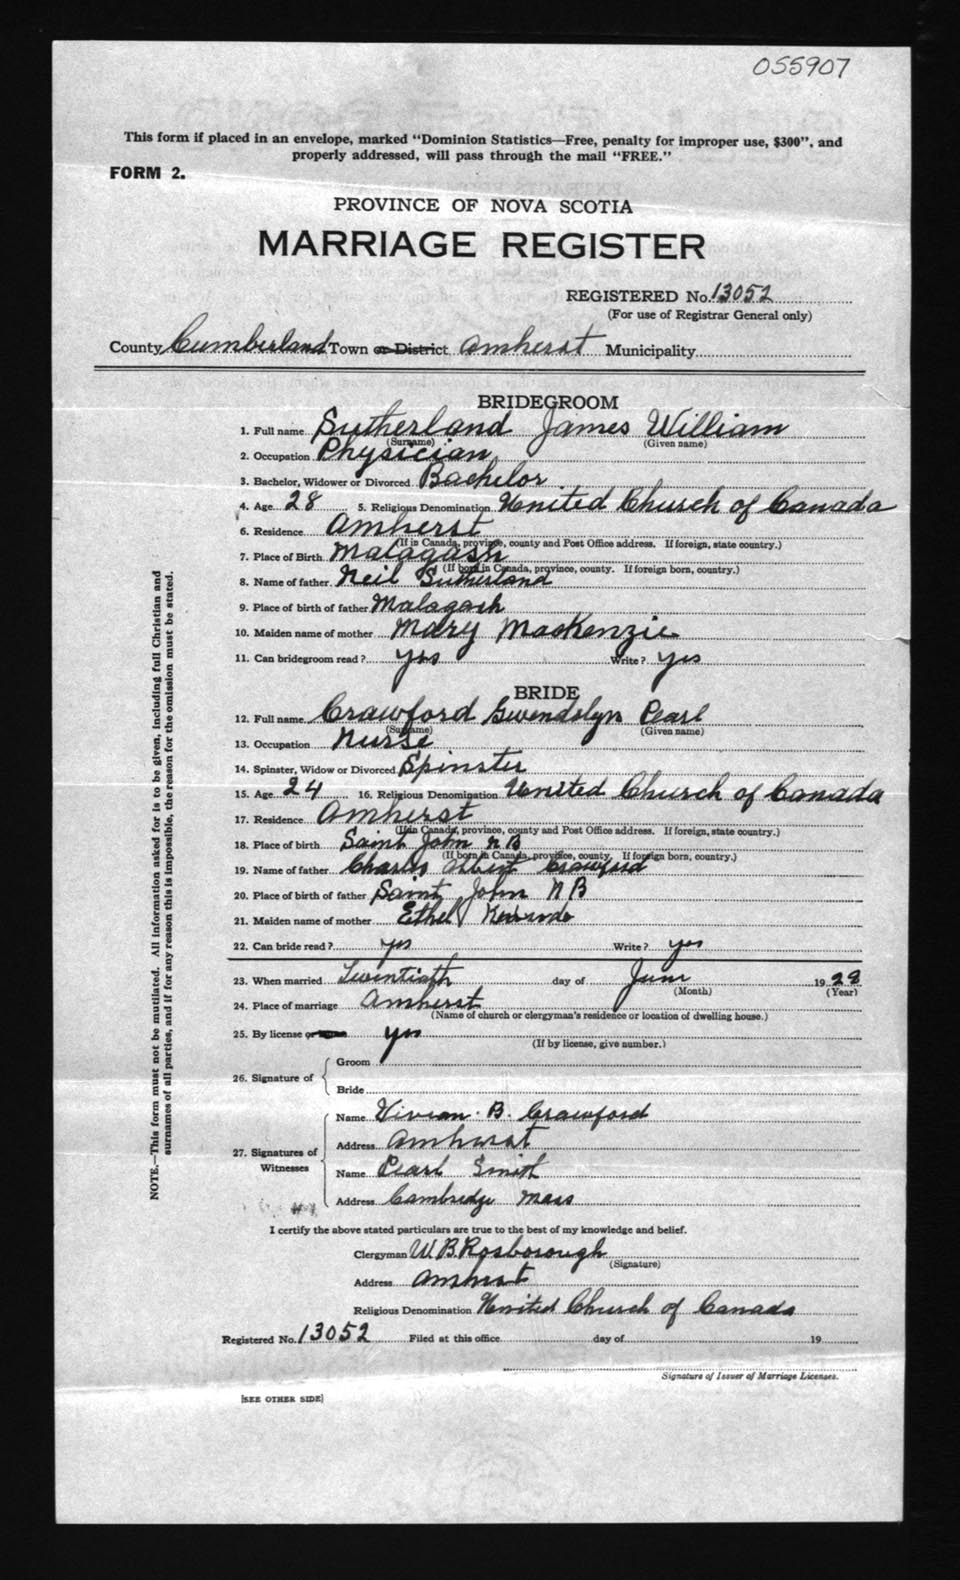 055907
This form if placed in an envelope, marked "Dominion Statistics—Free, penalty for improper use, $300", and
properly addressed, will pass through the mail "FREE."
FORM 2.
PROVINCE OF NOVA SCOTIA
MARRIAGE REGISTER
REGISTERED No. 13052
(For use of Registrar General only)
County Cumberland Town or District Amherst Municipality
BRIDEGROOM
1. Full name Sutherland James William
(Surname) (Given name)
2. Occupation Physician
3. Bachelor, Widower or Divorced Bachelor
4. Age 28 5. Religious Denomination United Church of Canada
6. Residence Amherst
(If in Canada, province, county and Post Office address. If foreign, state country.)
7. Place of Birth Malagash
(If born in Canada, province, county. If foreign born, country.)
8. Name of father Neil Sutherland
9. Place of birth of father Malagash
10. Maiden name of mother Mary MacKenzie
11. Can bridegroom read? yes Write? yes
BRIDE
12. Full name Crawford Gwendolyn Pearl
(Surname) (Given name)
13. Occupation Nurse
14. Spinster, Widow or Divorced Spinster
15. Age 24 16. Religious Denomination United Church of Canada
17. Residence Amherst
(If in Canada, province, county and Post Office address. If foreign, state country.)
18. Place of birth Saint John N B
(If born in Canada, province, county. If foreign born, country.)
19. Name of father Charles Albert Crawford
20. Place of birth of father Saint John N B
21. Maiden name of mother Ethel
22. Can bride read? yes Write? yes
23. When married Twentieth day of June 1929
(Month) (Year)
24. Place of marriage Amherst
(Name of church or clergyman's residence or location of dwelling house.)
25. By license or yes
(If by license, give number.)
26. Signature of
Groom
Bride
27. Signatures of Witnesses
Name Vivian B. Crawford
Address Amherst
Name Pearl Smith
Address Cambridge Mass
I certify the above stated particulars are true to the best of my knowledge and belief.
Clergyman W. B. Rosborough
(Signature)
Address Amherst
Religious Denomination United Church of Canada
Registered No. 13052 Filed at this office day of 19
Signature of Issuer of Marriage Licenses.
[SEE OTHER SIDE]
NOTE.—This form must not be mutilated. All information asked for is to be given, including full Christian and
surnames of all parties, and if for any reason this is impossible, the reason for the omission must be stated.